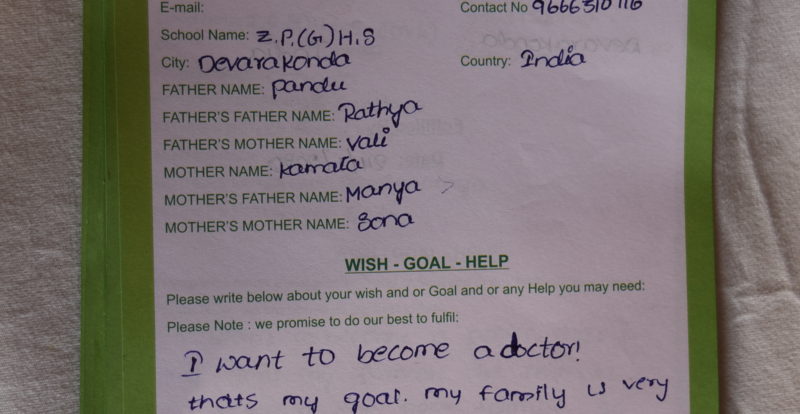 E-mail: Contact No 9666310116
School Name: Z.P.(G)H.S
City: Devarakonda Country: India
FATHER NAME: Pandu
FATHER'S FATHER NAME: Rathya
FATHER'S MOTHER NAME: Vali
MOTHER NAME: Kamala
MOTHER'S FATHER NAME: Manya
MOTHER'S MOTHER NAME: Sona
WISH - GOAL - HELP
Please write below about your wish and or Goal and or any Help you may need:
Please Note : we promise to do our best to fulfil:
I want to become a doctor!
thats my goal. my family is very